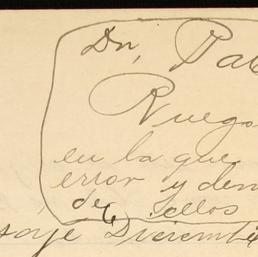 Dn, Pab
Ruego
en la que
error y dem
de sellos
soye Diciembre